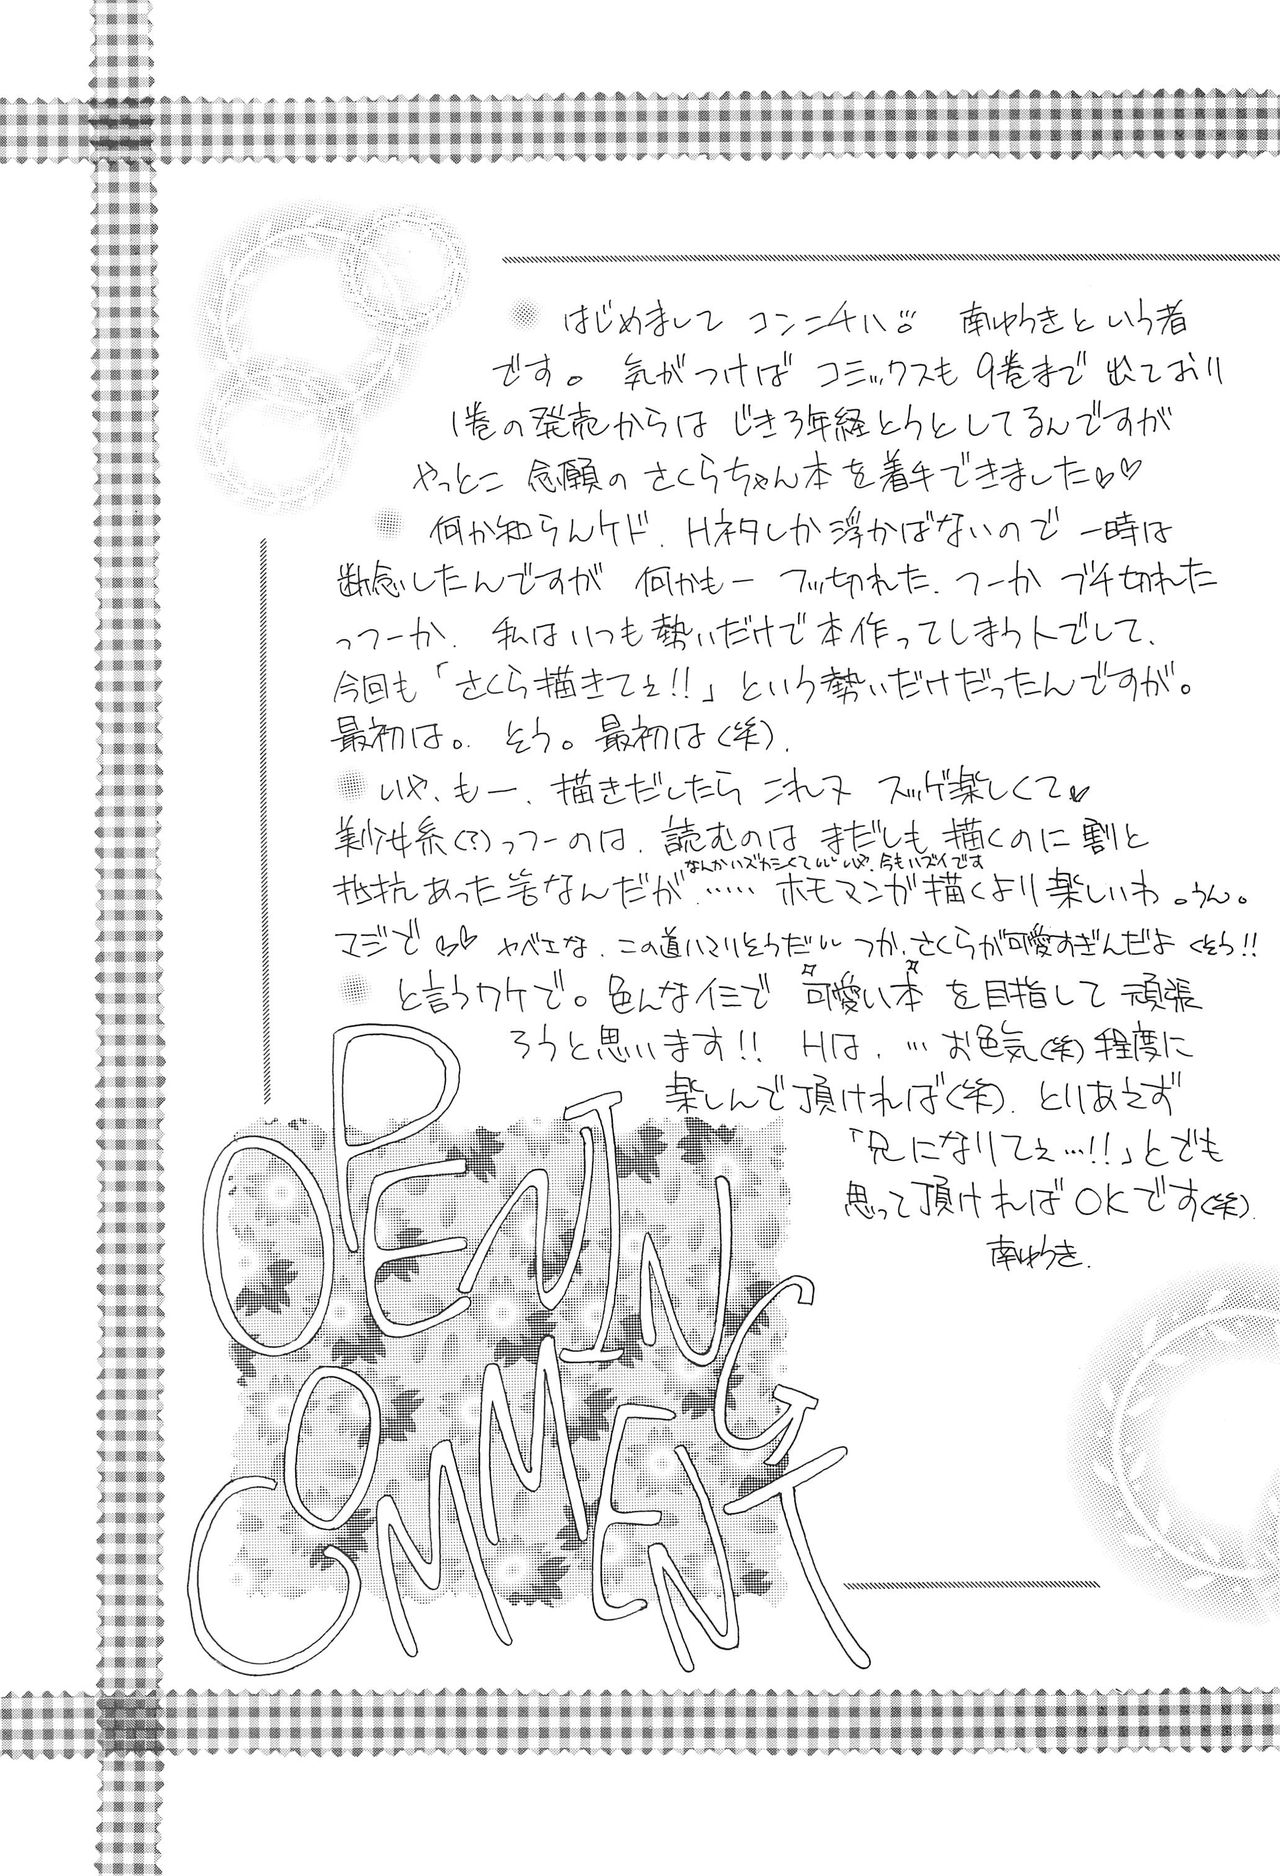 はじめまして コンニチハ 南ゆうきという者
です。気がつけば コミックスも 9巻まで 出ており
1巻の発売からは じき3年経とうとしてるんですが
やっとこ 念願の さくらちゃん本を着手できました♡♡
何か知らんケド、Hネタしか浮かばないので 一時は
断念したんですが 何かもー フッ切れた、つーか ブチ切れた
っつーか、私はいつも勢いだけで本作ってしまう人でして、
今回も「さくら描きてぇ!!」という勢いだけだったんですが。
最初は。そう。最初は(笑)、
いや、もー、描きだしたら これヌ スッゲ楽しくて♡
美少女系(?)っつーのは、読むのは まだしも 描くのに割と
なんかハズカシくて いや、今もハズイです
抵抗あった筈なんだが…… ホモマンガ描くより楽しいわ。うん。
マジで♡♡ ヤベエな、この道ハマりそうだ つか、さくらが可愛すぎんだよ くそう!!
と言うワケで。色んなイミで 可愛い本 を目指して 頑張
ろうと思います!! Hは、…お色気(笑)程度に
楽しんで頂ければ(笑)、とりあえず
「兄になりてぇ…!!」とでも
思って頂ければOKです(笑)、
南ゆうき.
OPENING
COMMENT